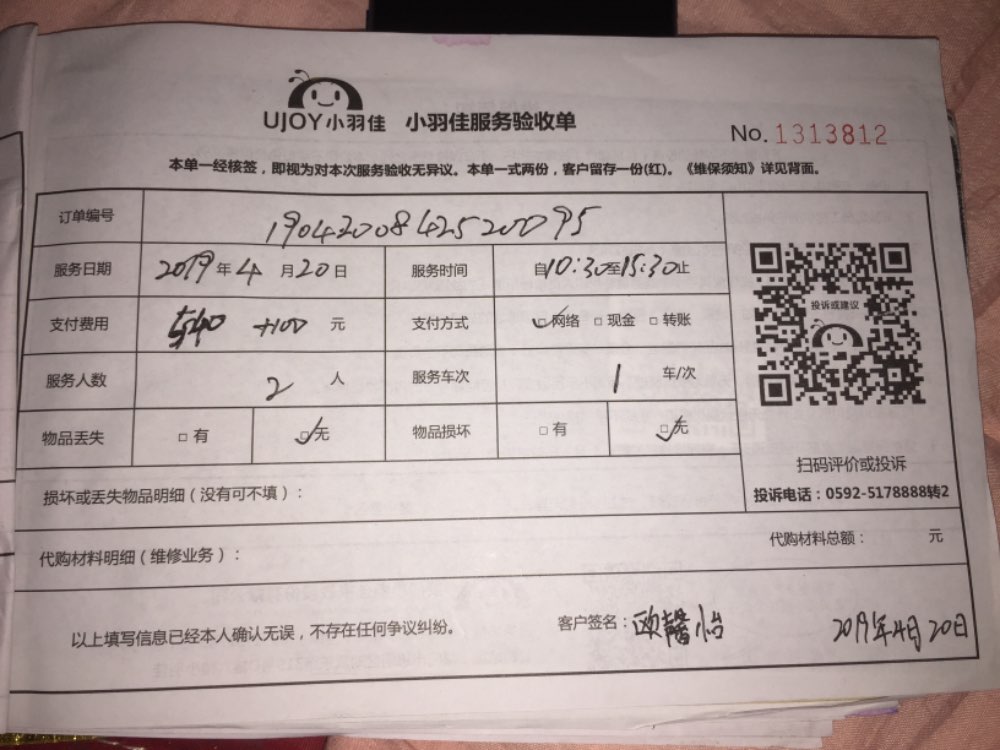 UJOY小羽佳 小羽佳服务验收单
No. 1313812
本单一经核签，即视为对本次服务验收无异议。本单一式两份，客户留存一份(红)。《维保须知》详见背面。
订单编号 19042008425200095
服务日期 2019年4月20日 服务时间 自10:30至15:30止
支付费用 540 +100 元 支付方式 ☑网络 □现金 □转账
服务人数 2 人 服务车次 1 车/次
物品丢失 □有 ☑无 物品损坏 □有 ☑无
投诉或建议
扫码评价或投诉
投诉电话：0592-5178888转2
损坏或丢失物品明细（没有可不填）：
代购材料明细（维修业务）： 代购材料总额： 元
以上填写信息已经本人确认无误，不存在任何争议纠纷。 客户签名：欧馨怡 2019年4月20日